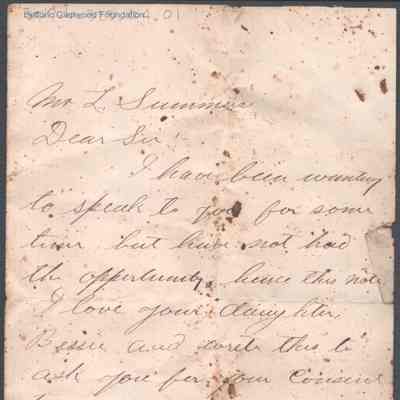 Mr L Summers
Dear Sir
I have been wanting
to speak to you for some
time but have not had
the oppertunity, hence this note
I love your daughter,
Bessie and write this to
ask you for your consent